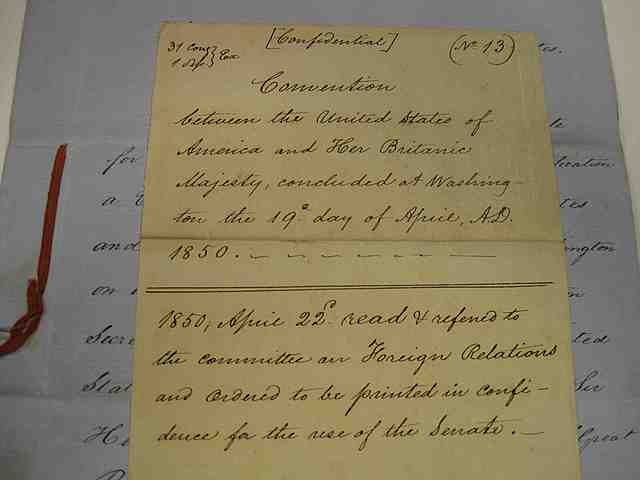 [Confidential]
31 Cong
1 Sess } Ex
(No 13)
Convention
between the United States of
America and Her Britanic
Majesty, concluded at Washing-
ton the 19th day of April, A.D.
1850.
1850, April 22d read & referred to
the committee on Foreign Relations
and ordered to be printed in confi-
dence for the use of the Senate.
for
a
and
on
Secre
Stat
ington
Great